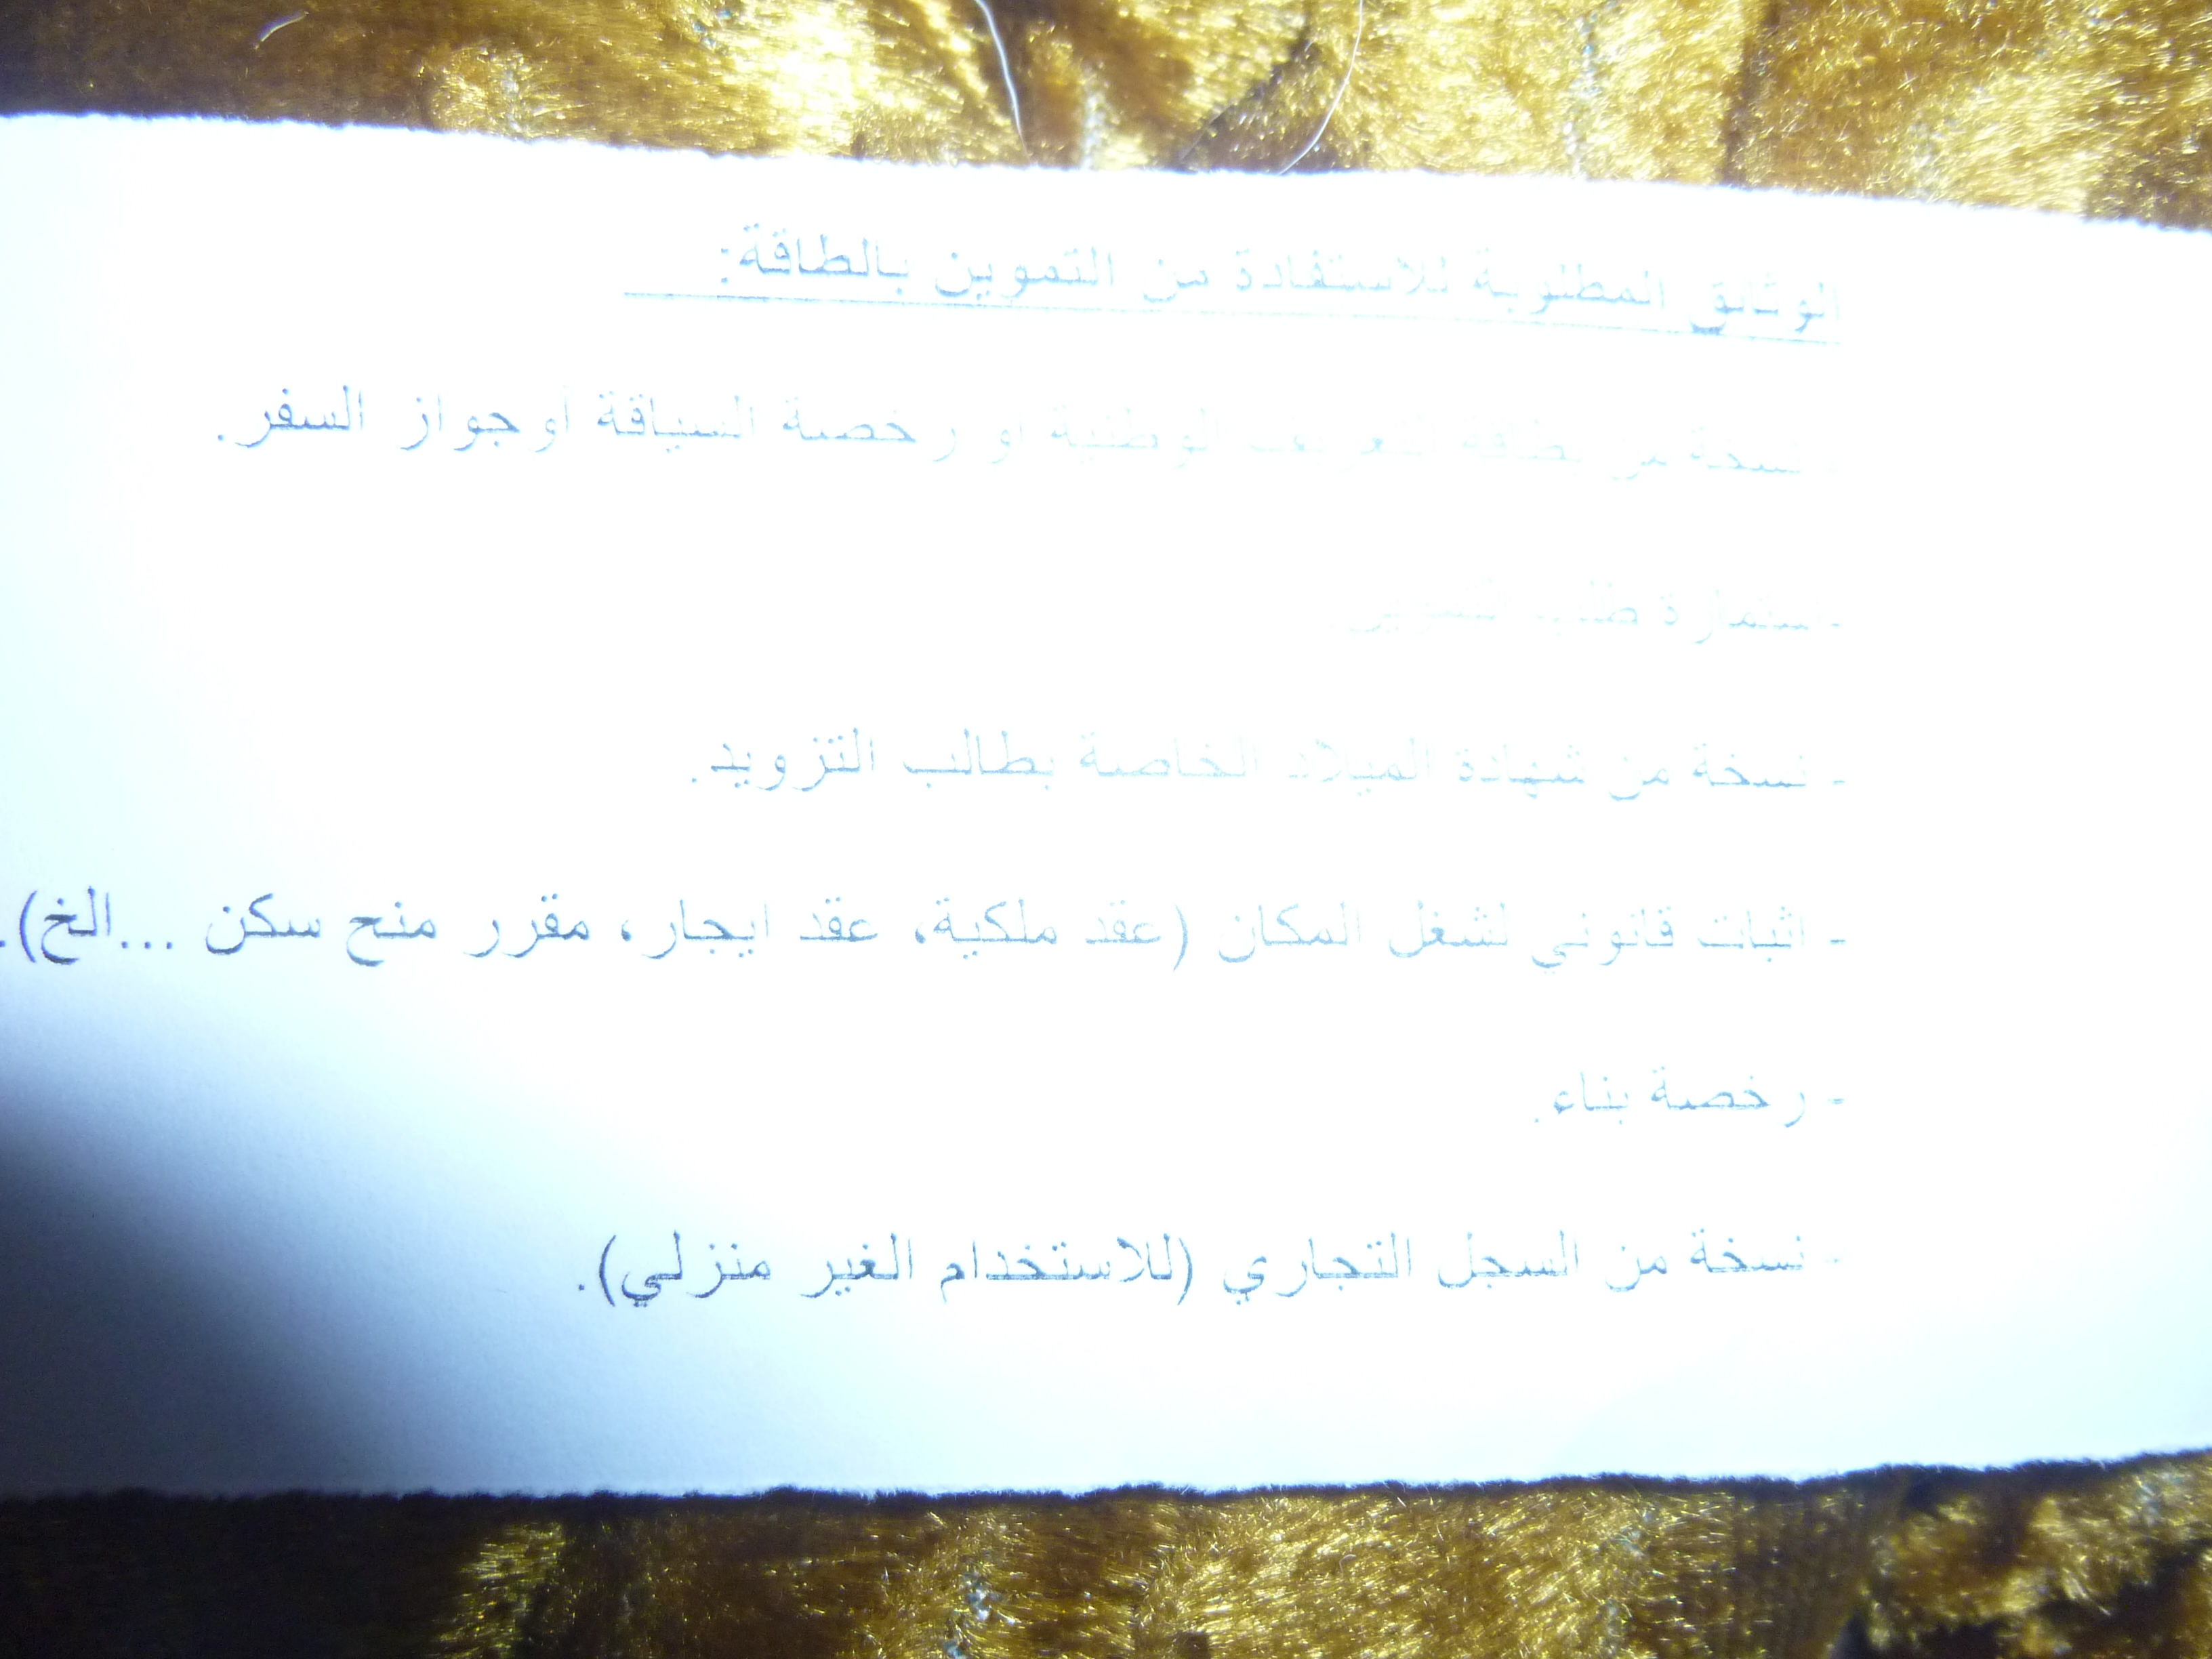 الوثائق المطلوبة للاستفادة من التموين بالطاقة:
- نسخة من بطاقة التعريف الوطنية او رخصة السياقة أوجواز السفر.
- استمارة طلب التموين.
- نسخة من شهادة الميلاد الخاصة بطالب التزويد.
- اثبات قانوني لشغل المكان (عقد ملكية، عقد ايجار، مقرر منح سكن ...الخ).
- رخصة بناء.
- نسخة من السجل التجاري (للاستخدام الغير منزلي).